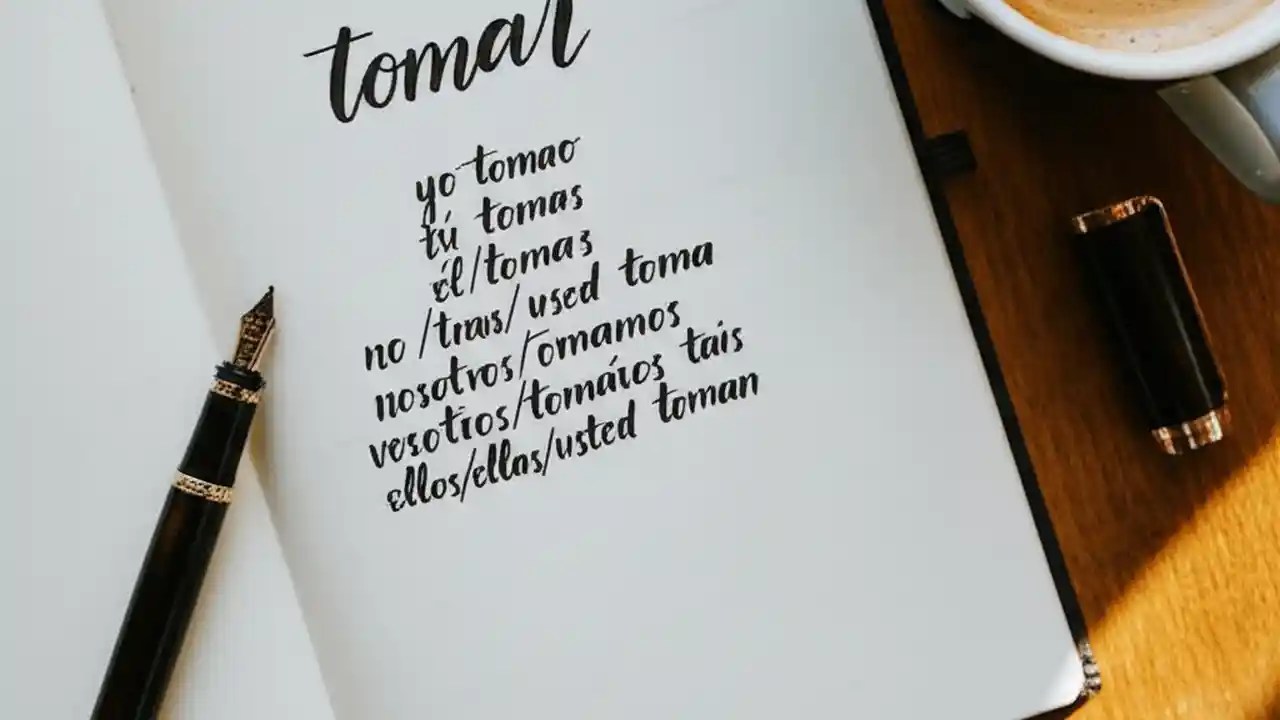 tomar
yo tomao
tú tomas
él/tomas
no/tras/used toma
nosotros/omamos
vesotros/tomáios tais
ellos/ellas/usted toman